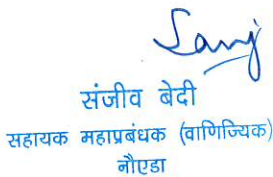 संजीव बेदी
सहायक महाप्रबंधक (वाणिज्यिक)
नौएडा